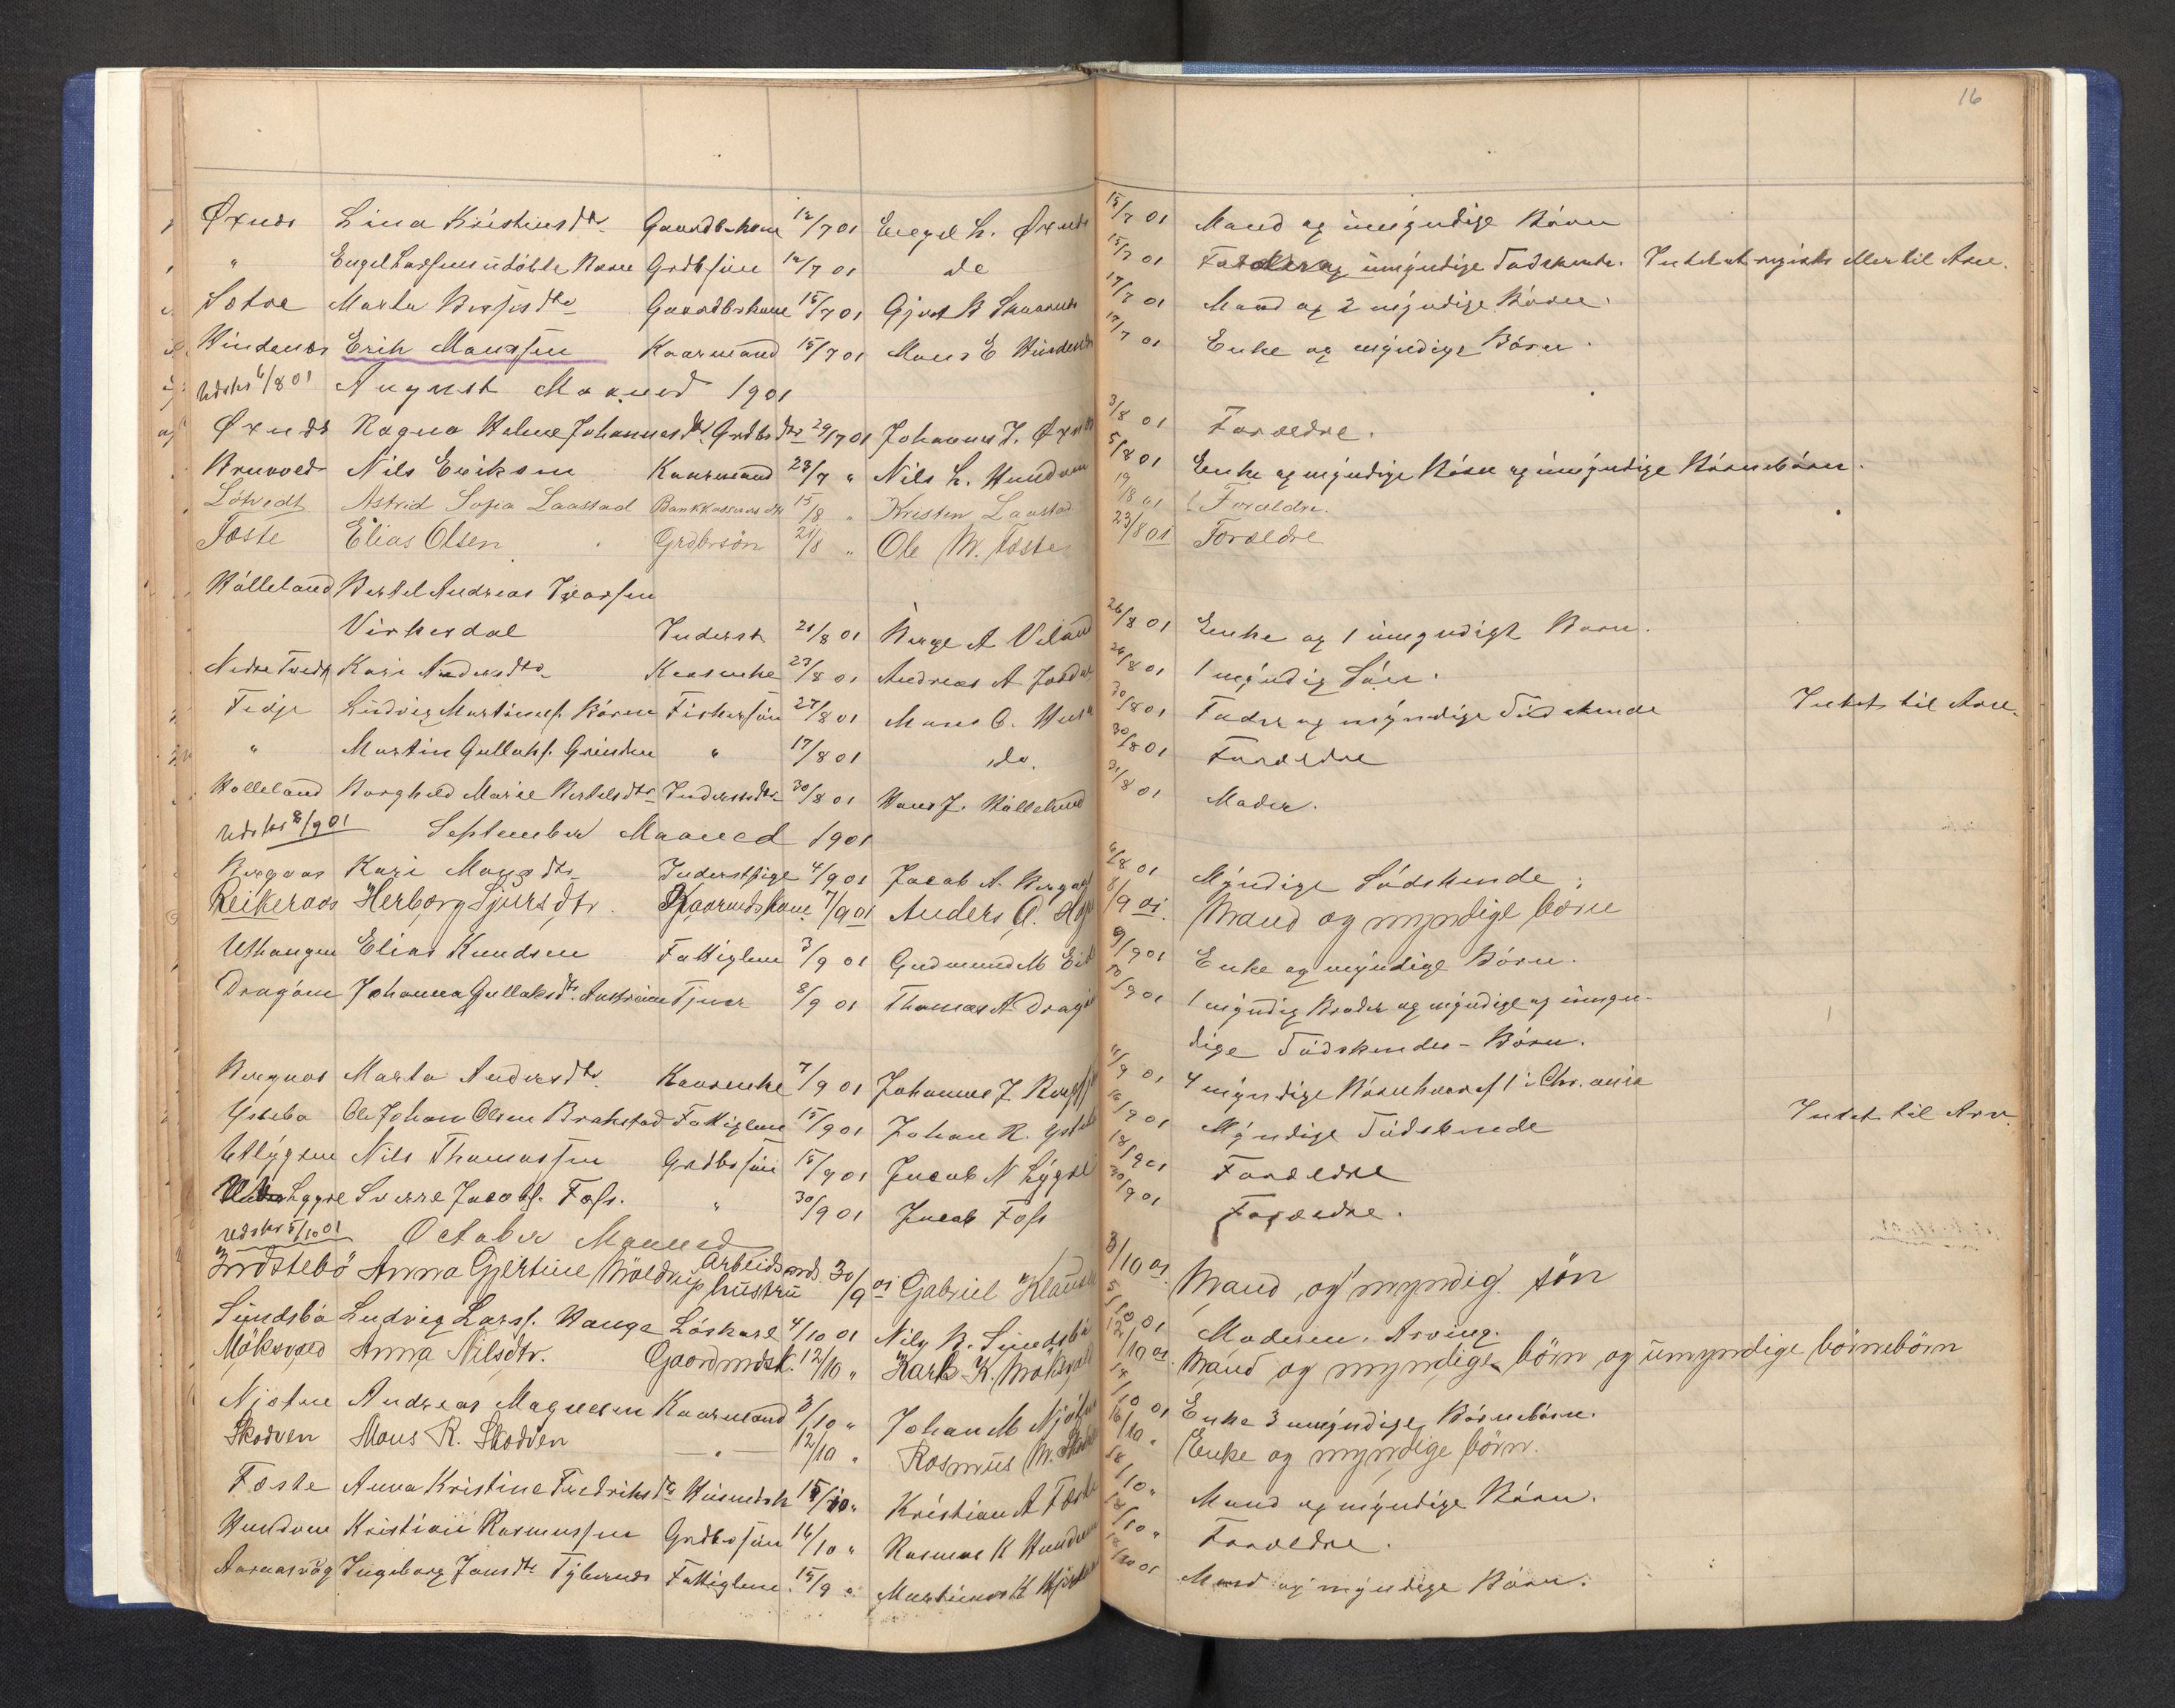 16
Øxnes Lina Kristensdtr Gaardbr.kone 12/7 01 Engel L. Øxnes 15/7 01 Mand og umyndige Børn
" Engel Larssens udøbte Barn Grdbrsøn 12/7 01 do 15/7 01 Forældre og umyndige Sødskende. Intet at registr. eller til Arv.
Sætre Marta Dtr Gaardbrkone 15/7 01 Gjert 17/7 01 Mand og 2 myndige Børn.
Hindenes Erik Monssen Kaarmand 15/7 01 Mons E Hindenes 17/7 01 Enke og myndige Børn.
Udskr 6/8 01 August Maaned 1901
Øxnes Ragna Johannesdtr. Grdbrdtr 29/7 01 Johannes J. Øxnes 3/8 01 Forældre.
Bruvold Nils Eriksen Kaarmand 28/7 " Nils L. Hundven 5/8 01 Enke og myndige Børn og umyndige Børnebørn.
Løtvedt Astrid Sofia Laastad Bankkasserers dtr 15/8 " Kristen Laastad 19/8 01 Forældre.
Foste Elias Olsen Grdbrsøn 21/8 " Ole M. Foste 23/8 01 Forældre
Hølleland Bertel Andreas Ivarsen
Virkesdal Inderst 21/8 01 Børge A Veland 26/8 01 Enke og 1 umyndigt Barn.
Nedre Tvedt Kari Andersdtr Kaarenke 23/8 01 Andreas A 26/8 01 1 myndig Søn.
Fedje Ludvig Martinus. Børnes Fiskersøn 27/8 01 Mons O. Husa 30/8 01 Fader og myndige Sødskende Intet til Arv.
" Martin Gullaks. Grinden " 17/8 01 do. 30/8 01 Forældre
Hølleland Borghild Marie Bertelsdtr Inderstdtr 30/8 01 Hans J. Hølleland 31/8 01 Moder.
Udskr 8/9 01 September Maaned 1901
Bergaas Kari Monsdtr Inderstpige 4/9 01 Jacob A. 6/8 01 Myndige Sødskende.
Reikeraas Herborg Sjursdtr. Kaarmdskone 7/9 01 Anders A. 8/9 01. Mand og myndige børn
Uthaugen Elias Knudsen Fattiglem 3/9 01 Gudmund M Eid 9/9 01 Enke og myndige Børn.
Dragøen Johanna Gullaksdtr. Austrheim Tjener 8/9 01 Thomas A Dragø 10/9 01 1 myndig Broder og myndige og umyn-
dige Sødskendes-Børn.
Bergaas Marta Andersdtr. Kaarenke 7/9 01 Johannes J 11/9 01 4 myndige Børn hvoraf 1 i Chr.ania
Ystebø Ole Johan Olsen Brakstad Fattiglem 15/9 01 Johan R. Ystebø 16/9 01 Myndige Sødskende Intet til Arv.
Utlygren Nils Thomassen Grdbrsøn 15/9 01 Jacob N Lygre 18/9 01 Forældre
Lygre Sverre Jacobs. Foss. " 30/9 01 Jacob Foss 30/9 01 Forældre.
Udskr 5/10 01 October Maaned
Indstebø Anna Gjertine Møldrup Arbeidsmds. hustru 30/9 01 Gabriel Klausen 3/10 01 Mand og myndig søn
Sundsbø Ludvig Lars. Hauge Løskarl 4/10 01 Nils N. Sundsbø 5/10 01 Moderen. Arving.
Møksvold Anna Nilsdtr. Gaardmdsk. 12/10 " Karl K. Møksvold 12/10 01. Mand og myndige børn og umyndige børnebørn
Njøten Andreas Magnesen Kaarmand 3/10 " Johan M Njøten 14/10 01 Enke 3 umyndige Børnebørn.
Skodven Mons R. Skodven — " — 12/10 " Rasmus M. Skodven 16/10 " Enke og myndige børn.
Foste Anna Kristine Fredriksdtr Husmdsk 15/10 " Kristian A Foste 18/10 " Mand og myndige Børn.
Hundven Kristian Rasmussen Grdbrsøn 16/10 " Rasmus K Hundven 18/10 " Forældre.
Aaraasvåg Ingeborg Jonsdtr Fattiglem. 15/9 " Martinus K 18/10 01 Mand og myndige Børn.